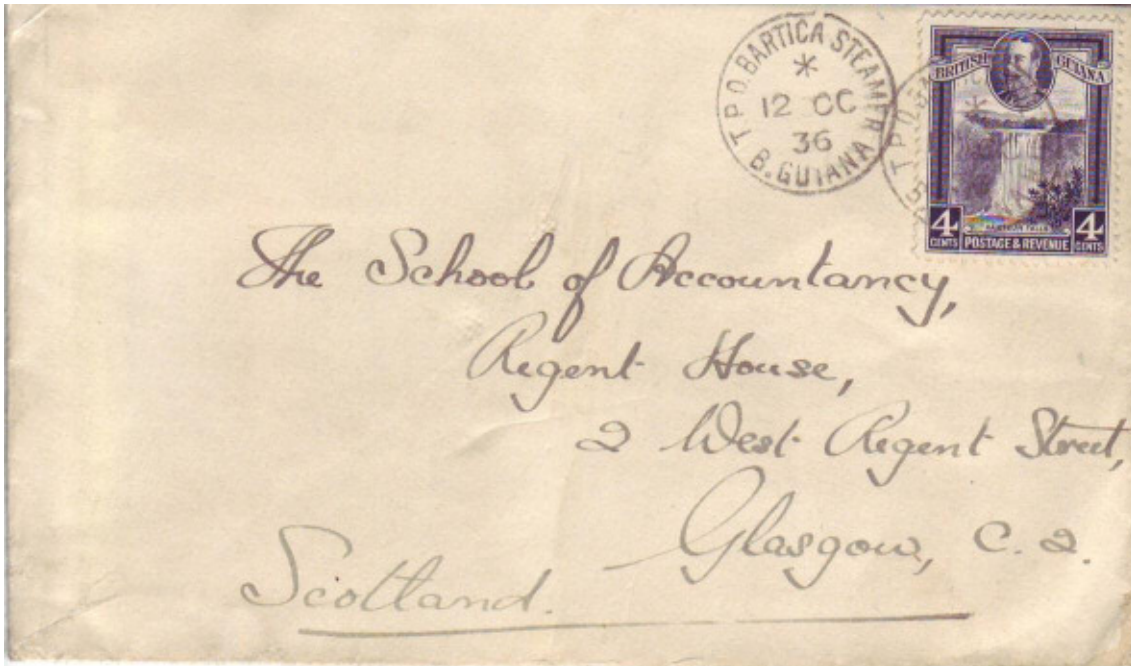 T.P.O. BARTICA STEAMER
*
12 OC
36
B. GUIANA
BRITISH GUIANA
T P O
4 CENTS POSTAGE & REVENUE 4 CENTS
The School of Accountancy,
Regent House,
2 West Regent Street,
Glasgow, C.2.
Scotland.